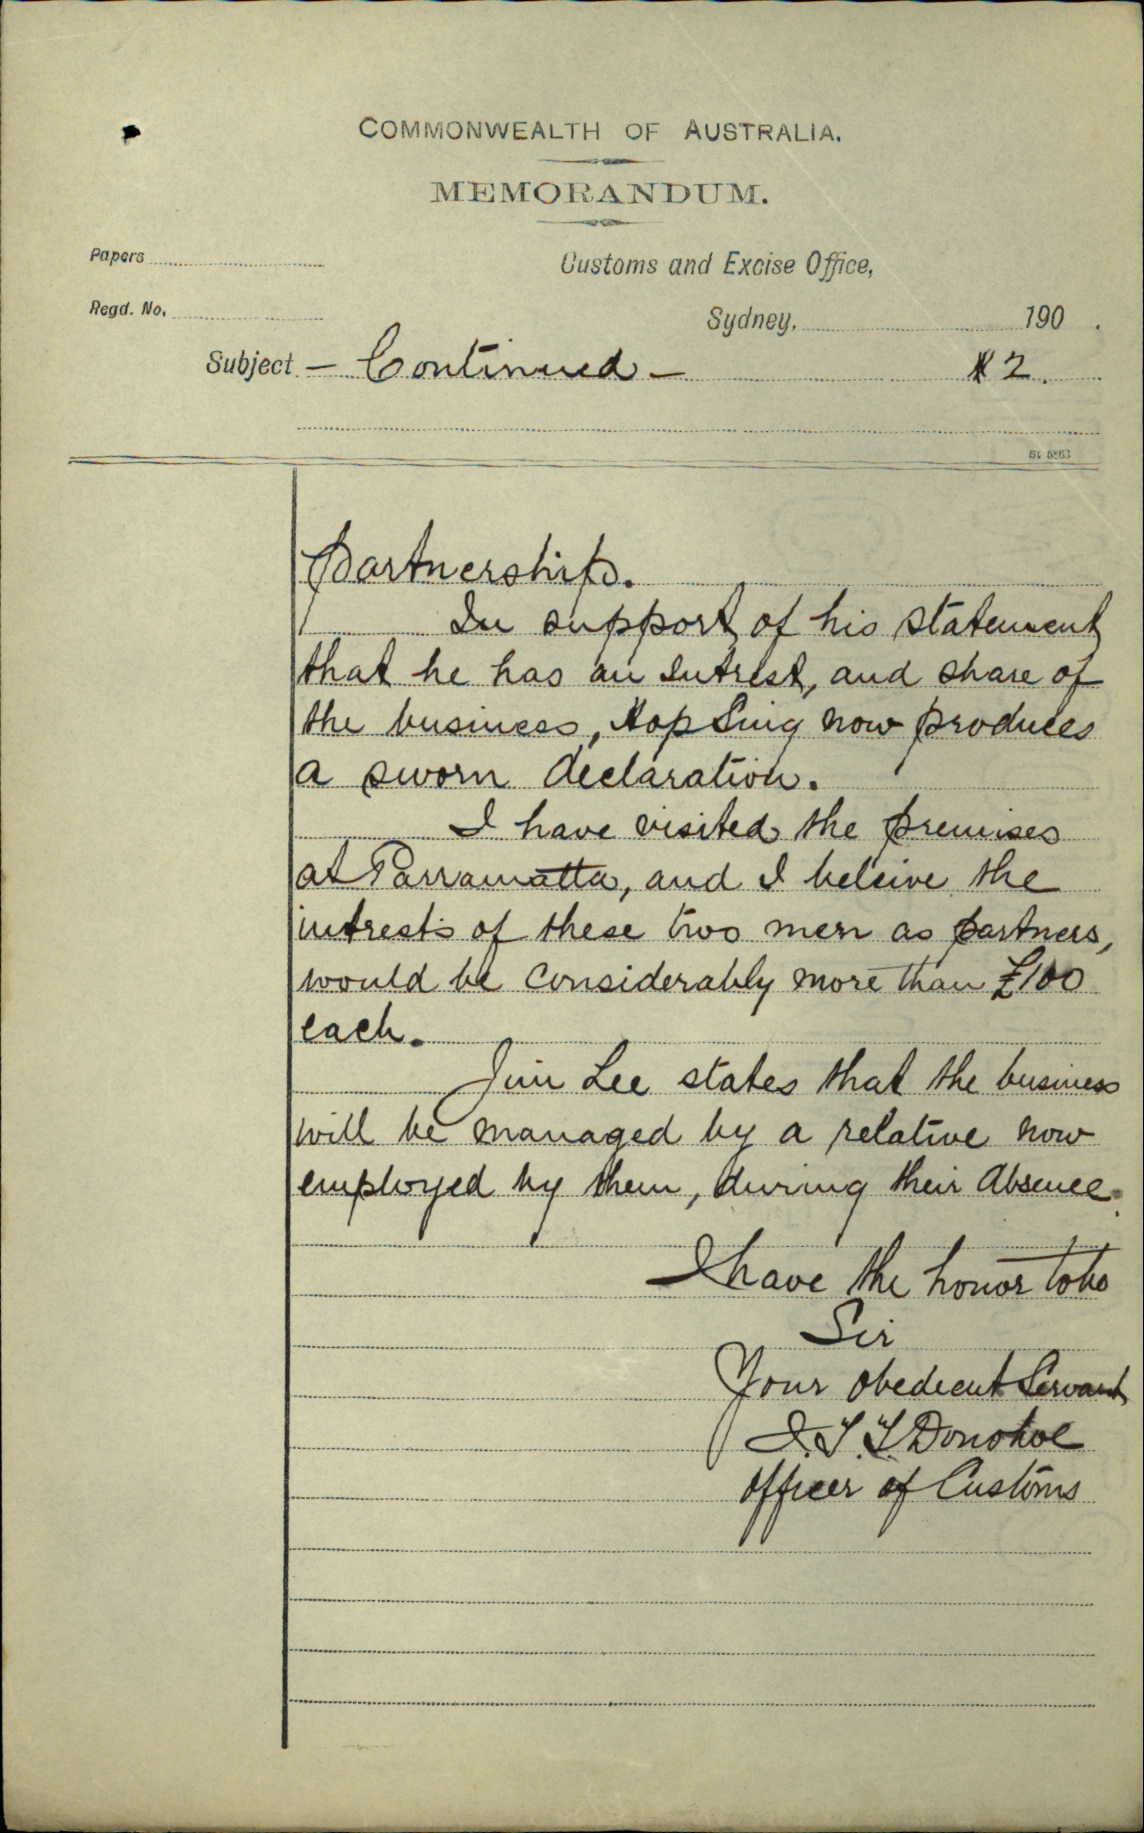 COMMONWEALTH OF AUSTRALIA.
MEMORANDUM.
Papers
Customs and Excise Office,
Regd. No.
Sydney, 190 .
Subject - Continued - 2.
partnership.
In support of his statement
that he has an intrest, and share of
the business, Hop Sing now produces
a sworn declaration.
I have visited the premises
at Parramatta, and I beleive the
intrests of these two men as partners,
would be considerably more than £100
each.
Jim Lee states that the business
will be managed by a relative now
employed by them, during their absence.
I have the honor to be
Sir
Your obedient Servant
J.T.T. Donohoe
Officer of Customs